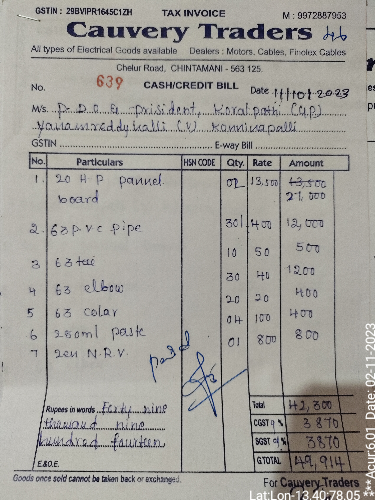 GSTIN : 29BVIPR1645C1ZH TAX INVOICE M : 9972887953
Cauvery Traders 46
All types of Electrical Goods available Dealers : Motors, Cables, Finolex Cables
Chelur Road, CHINTAMANI - 563 125.
No. 639 CASH/CREDIT BILL Date 11/10/2023
M/s. P.D.O & prisident, Koralpathi (G.P)
Yanamreddyhalli (V) Kanninapalli
GSTIN E-way Bill
No. Particulars HSN CODE Qty. Rate Amount
1. 20 H.P pannel 02 13,500 13,500
board 27,000
2. 63 p.v.c pipe 30l 400 12,000
3 63 tee 10 50 500
4 63 elbow 30 40 1200
5 63 colar 20 20 400
6 250ml paste 04 100 400
7 2en N.R.V. 01 800 800
pased
Rupees in words Forty nine Total 42,300
thousand nine CGST 9 % 3870
hundred fourteen SGST 9 % 3870
E.&O.E. G.TOTAL 49,914
Goods once sold cannot be taken back or exchanged. For Cauvery Traders
Lat:Lon-13.40:78.05
***Acur:6.01 Date: 02-11-2023